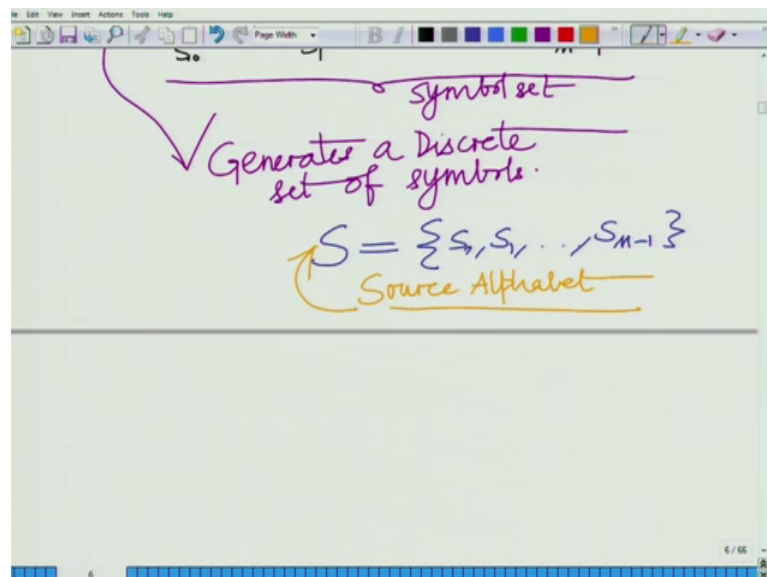 File Edit View Insert Actions Tools Help
Page Width
B I
symbol set
Generates a Discrete
set of symbols.
S = {S₀, S₁, . . ., S_{M-1}}
Source Alphabet
6 / 66
6